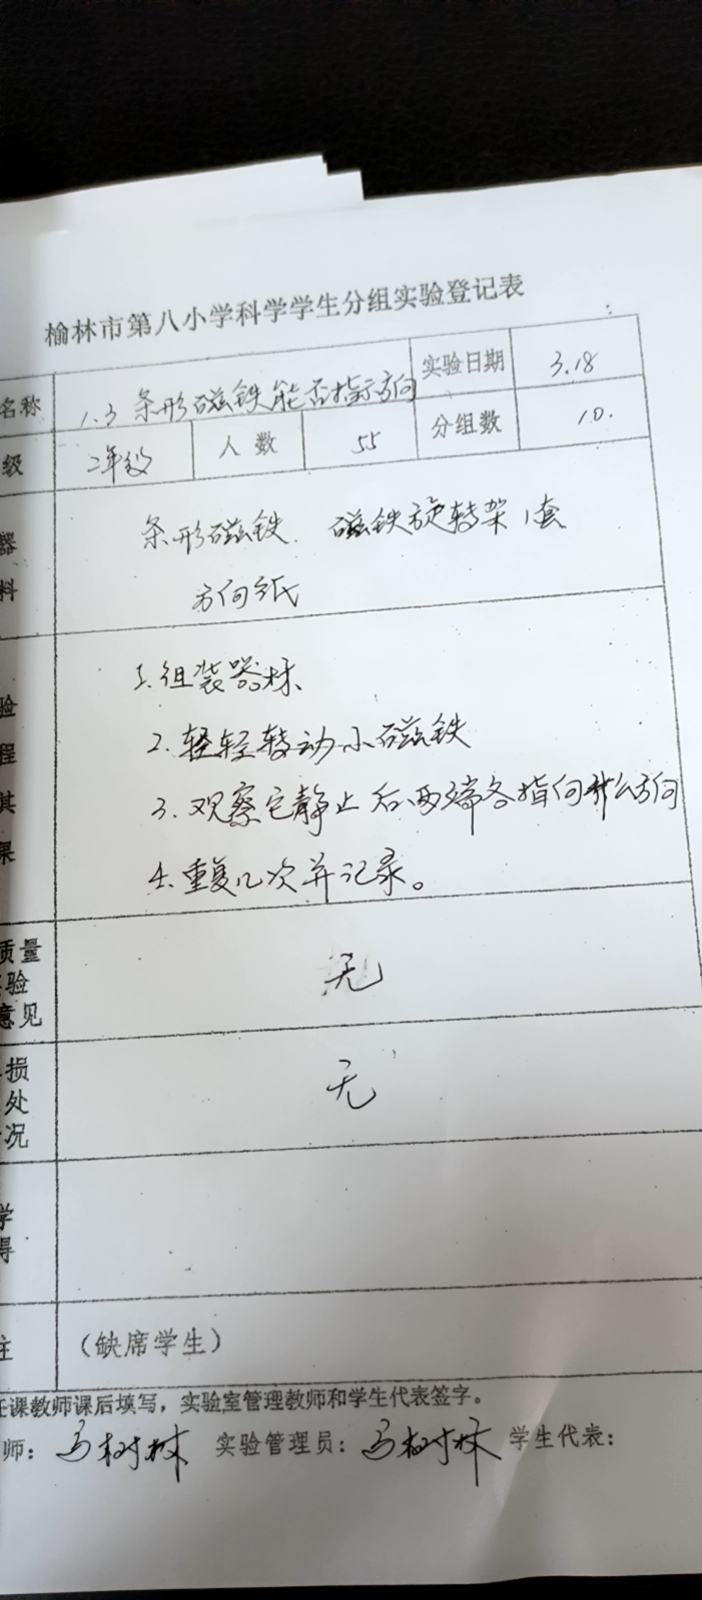 榆林市第八小学科学学生分组实验登记表
名称 1.3 条形磁铁能否指示方向 实验日期 3.18
级 2年级 人数 55 分组数 10.
器 条形磁铁、磁铁旋转架1套
料 方向纸
1.组装器材
验 2.轻轻转动小磁铁
程 3.观察它静止后两端各指向什么方向
其
果 4.重复几次并记录。
质量
验 无
意见
损
处 无
况
学
得
注 (缺席学生)
任课教师课后填写，实验室管理教师和学生代表签字。
师： 马树林 实验管理员：马树林 学生代表：